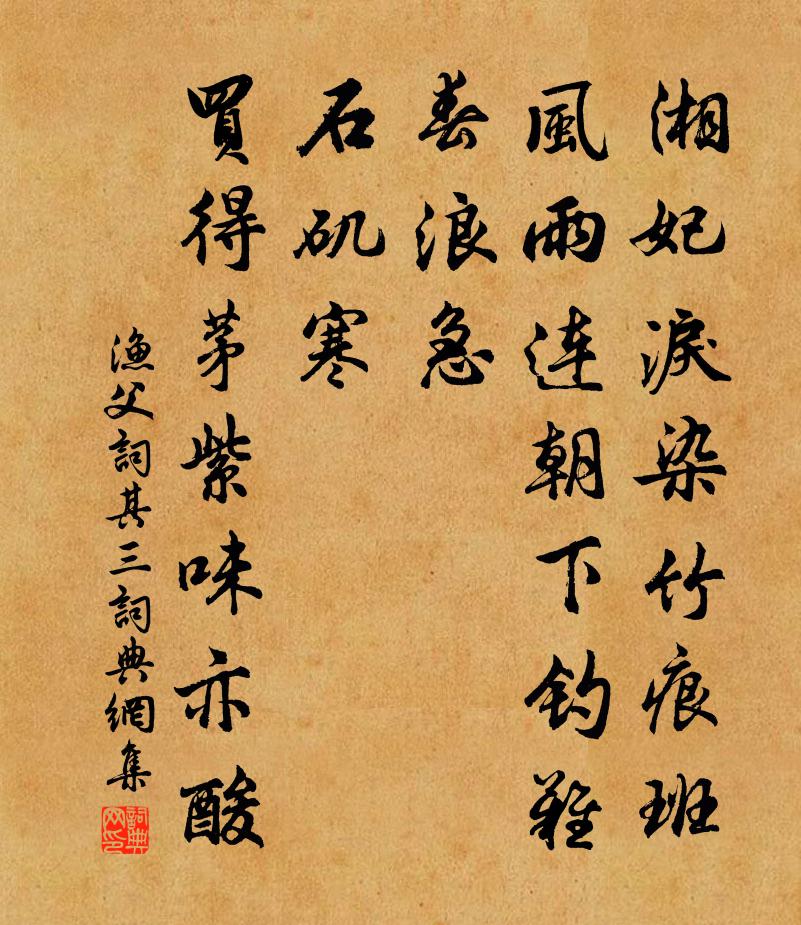 湘妃淚染竹痕班
風雨連朝下釣難
春浪急
石矶寒
買得茅紫味亦酸
漁父詞其三詞典網集
詞典网印